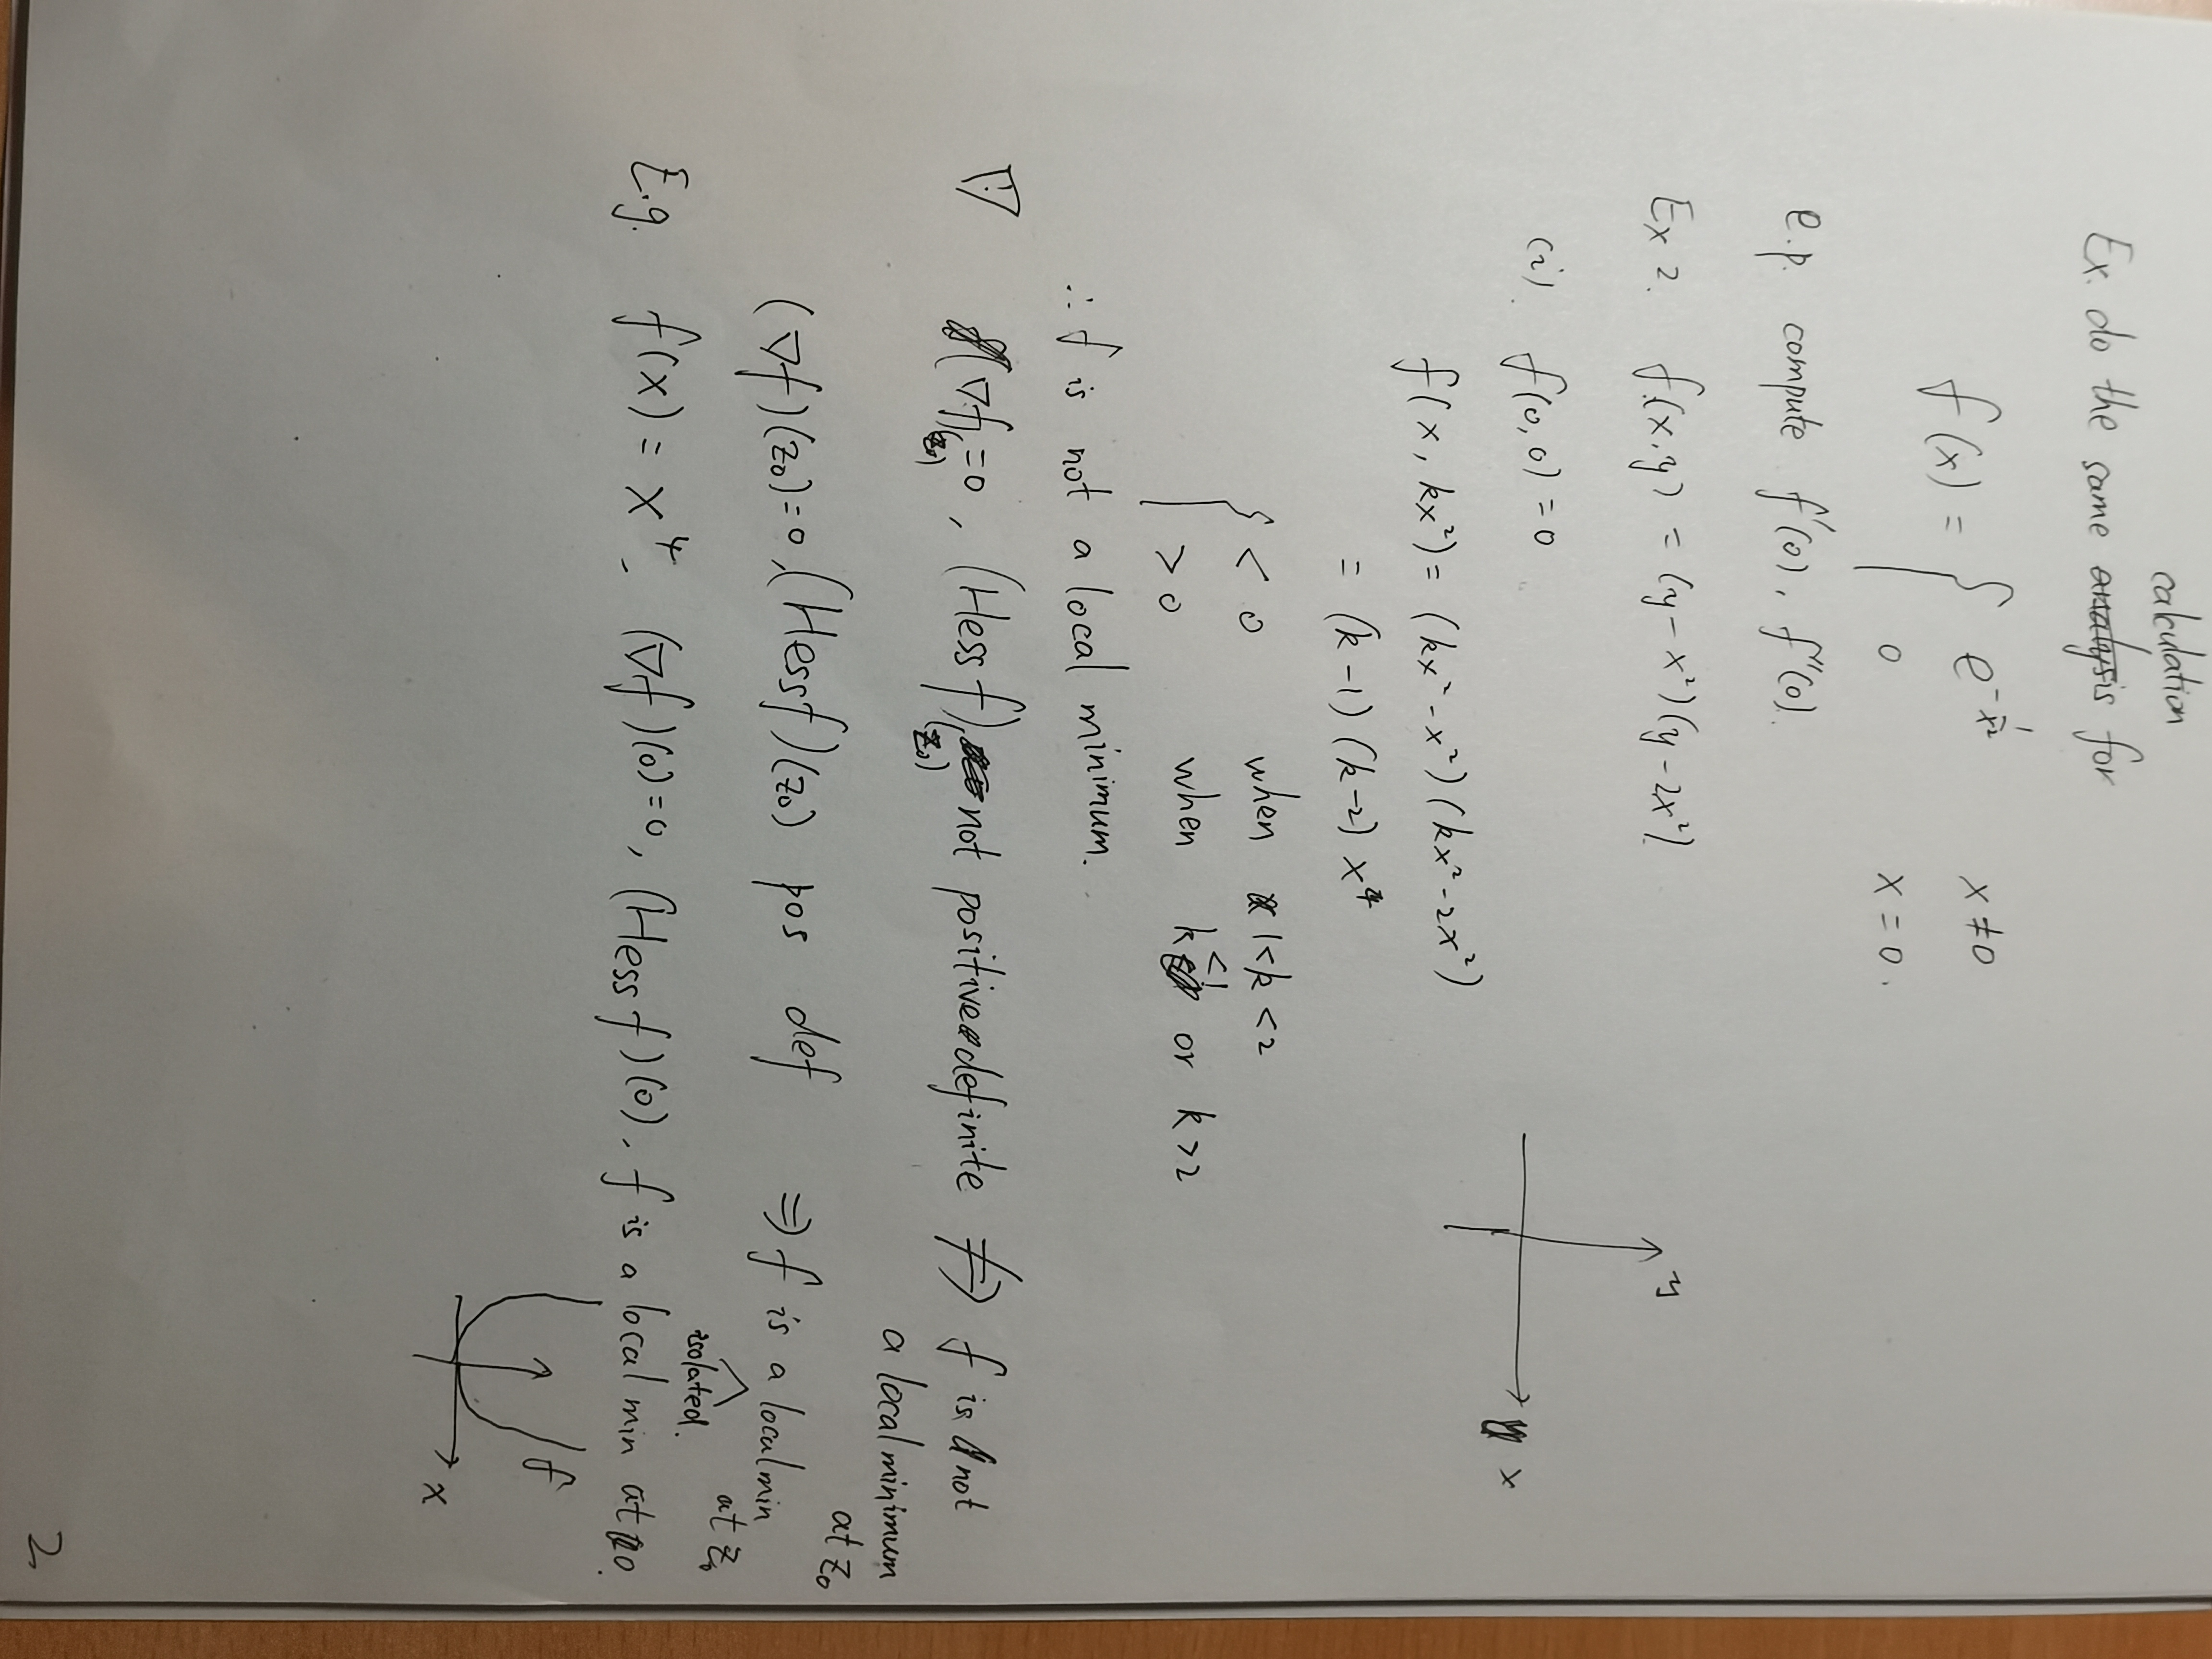 calculation
Ex. do the same analysis for
f(x) = { e^{-1/x²} x ≠ 0
0 x = 0.
e.p. compute f'(0), f''(0).
Ex 2. f(x,y) = (y-x²)(y-2x²)
y
(i). f(0,0) = 0
x
f(x, kx²) = (kx²-x²)(kx²-2x²)
= (k-1)(k-2) x⁴
{ < 0 when 1<k<2
> 0 when k <1 or k>2
∴ f is not a local minimum.
(∇f)(z₀)=0, (Hess f)(z₀) not positive definite ⇏ f is not
a local minimum
at z₀
(∇f)(z₀)=0, (Hess f)(z₀) pos def ⇒ f is a local min
at z₀
isolated.
E.g. f(x) = x⁴, (∇f)(0)=0, (Hess f)(0), f is a local min at 0.
f
x
2